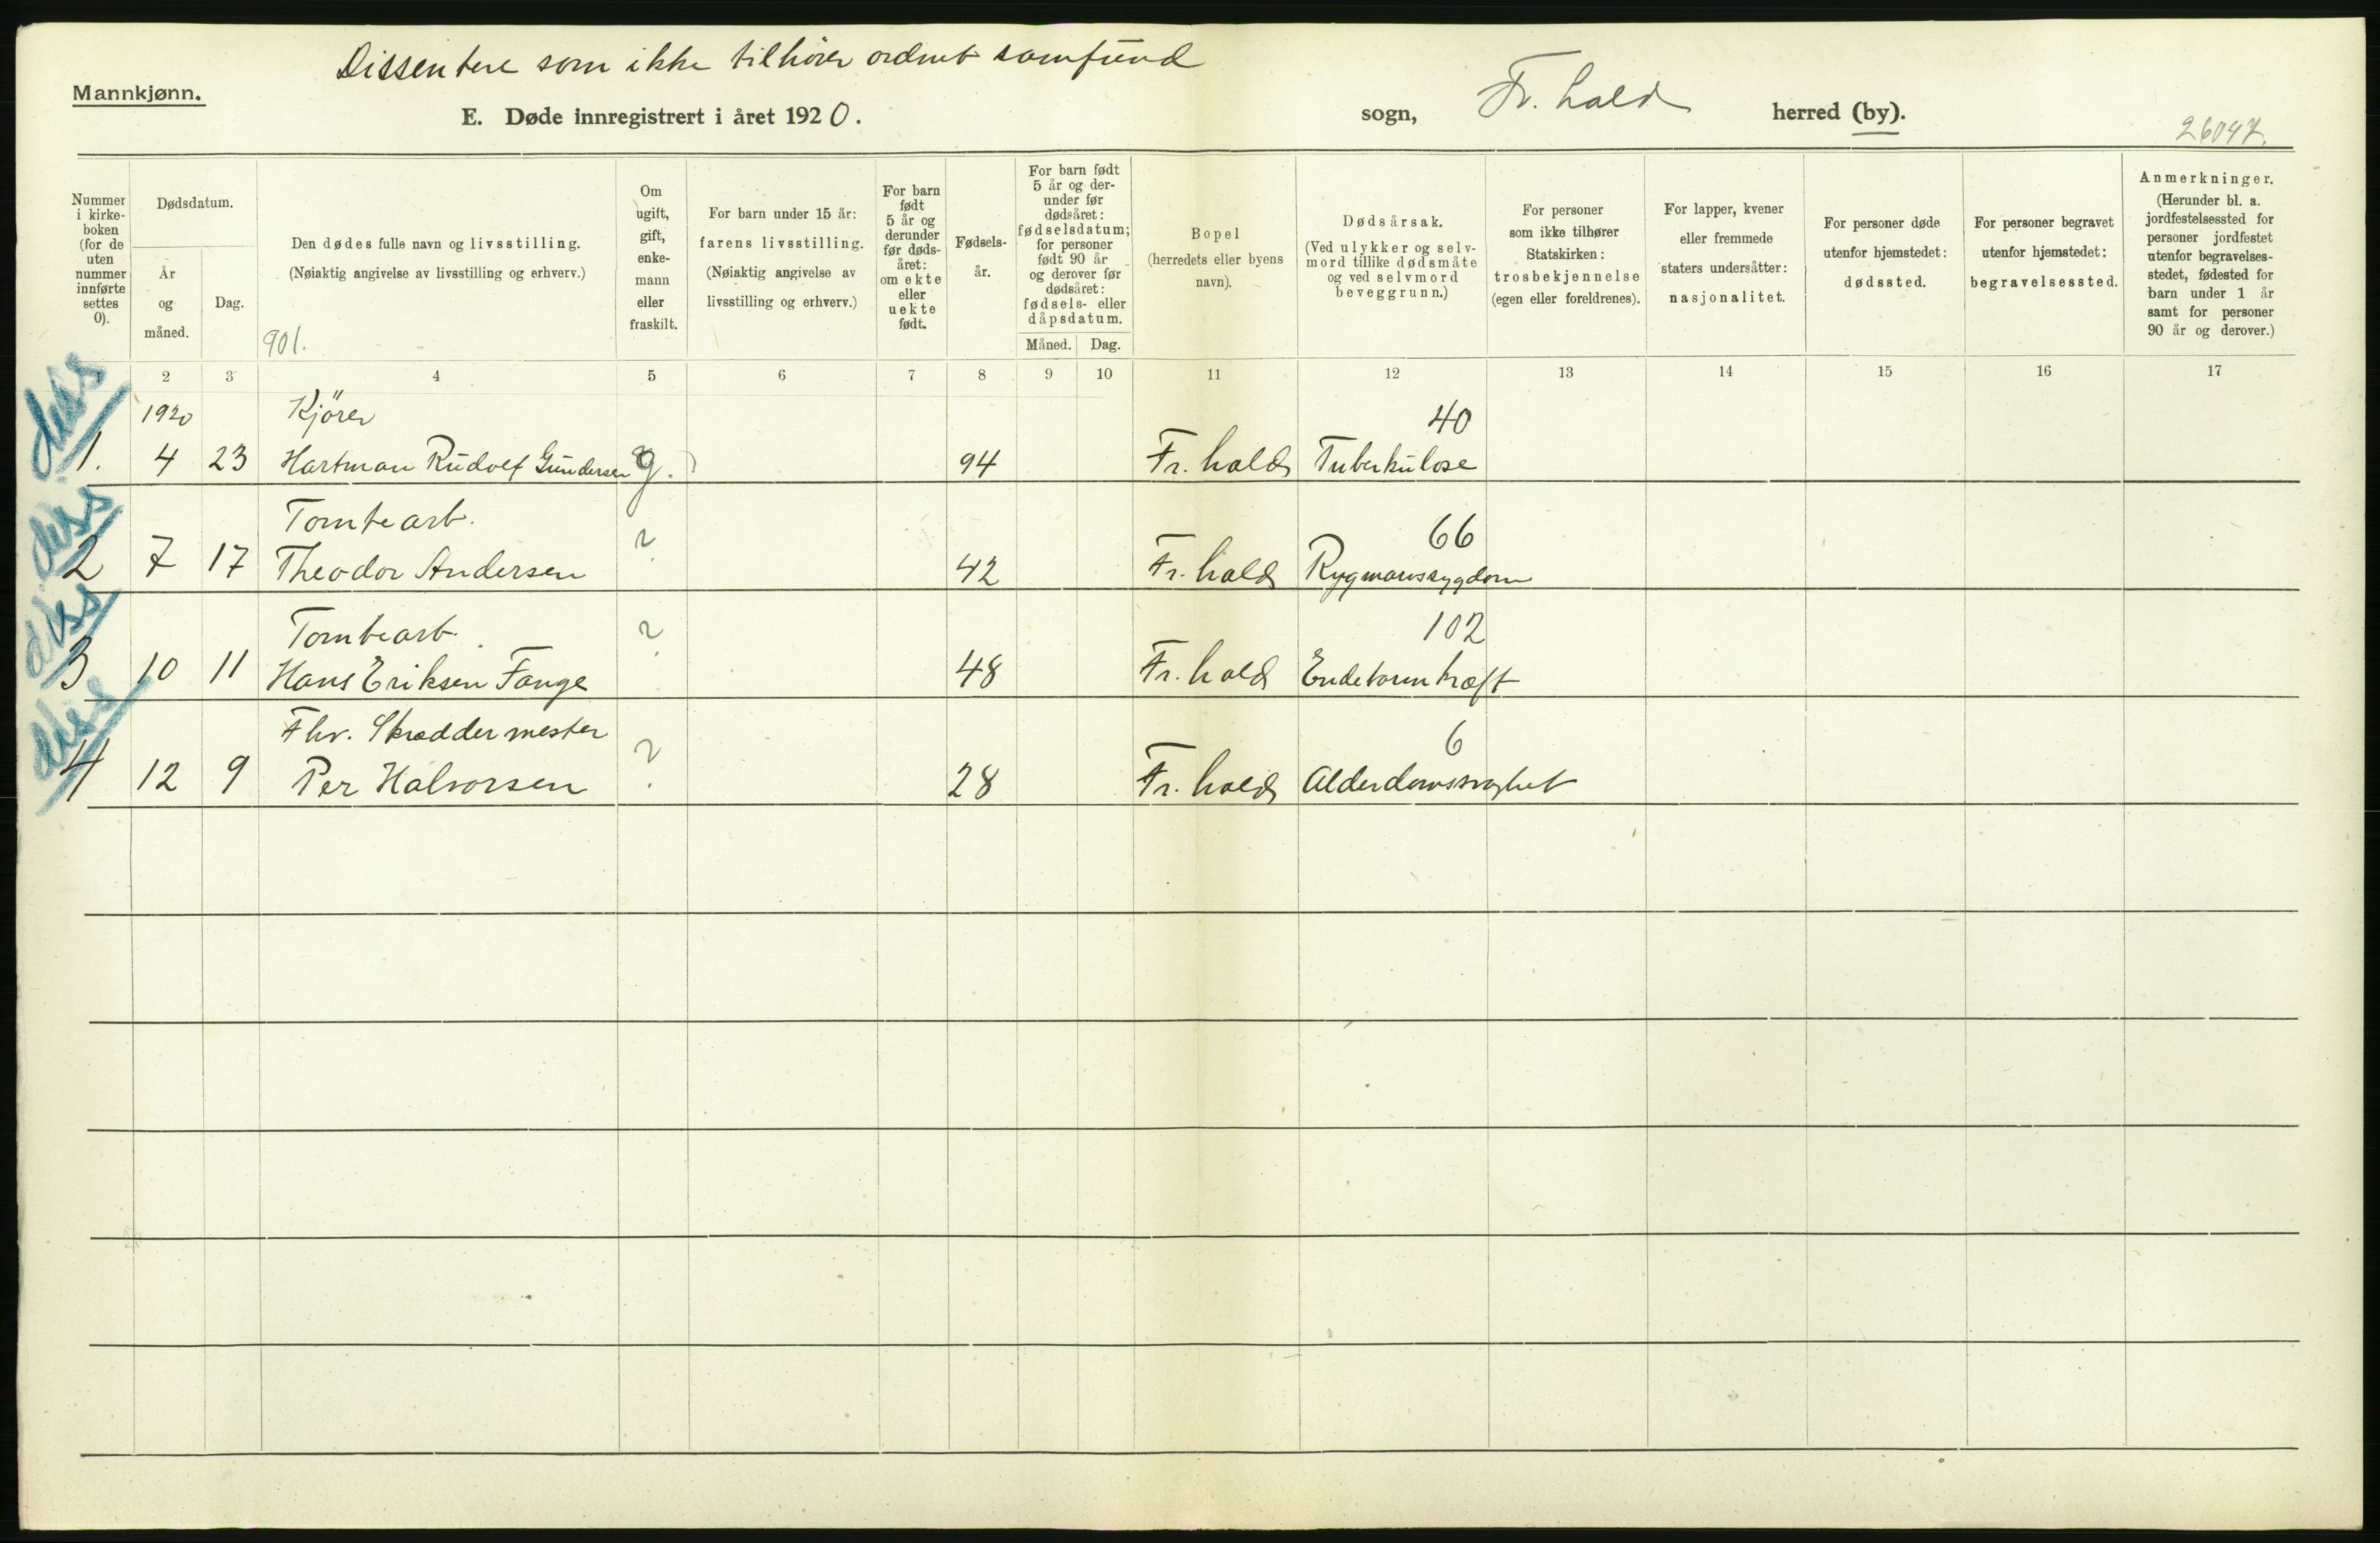 Dissentere som ikke tilhører ordnet samfund
Mannkjønn.
E. Døde innregistrert i året 1920.
sogn, Fr.hald herred (by).
26047.
Nummer i kirke-boken (for de uten nummer innførte settes 0).
Dødsdatum.
År og måned.
Dag.
Den dødes fulle navn og livsstilling.
(Nøiaktig angivelse av livsstilling og erhverv.)
901.
Om ugift, gift, enke-mann eller fraskilt.
For barn under 15 år:
farens livsstilling.
(Nøiaktig angivelse av livsstilling og erhverv.)
For barn født 5 år og derunder før døds-året: om ekte eller uekte født.
Fødsels-år.
For barn født 5 år og der-under før dødsåret: fødselsdatum; for personer født 90 år og derover før dødsåret: fødsels- eller dåpsdatum.
Måned. Dag.
Bopel
(herredets eller byens navn).
Dødsårsak.
(Ved ulykker og selv-mord tillike dødsmåte og ved selvmord beveggrunn.)
For personer som ikke tilhører Statskirken: trosbekjennelse (egen eller foreldrenes).
For lapper, kvener eller fremmede staters undersåtter: nasjonalitet.
For personer døde utenfor hjemstedet: dødssted.
For personer begravet utenfor hjemstedet: begravelsessted.
Anmerkninger.
(Herunder bl. a. jordfestelsessted for personer jordfestet utenfor begravelses-stedet, fødested for barn under 1 år samt for personer 90 år og derover.)
1 2 3 4 5 6 7 8 9 10 11 12 13 14 15 16 17
diss
1920 Kjører 40
1. 4 23 Hartman Rudolf Gundersen g. ? 94 Fr.hald Tuberkulose
diss
Tomtearb. ? 66
2 7 17 Theodor Andersen 42 Fr.hald Rygmarvssygdom
diss
Tomtearb. ? 102
3 10 11 Hans Eriksen Fange 48 Fr.hald Endetarmkræft
diss
Fhv. Skræddermester ? 6
4 12 9 Per Halvorsen 28 Fr.hald Alderdomssvaghet